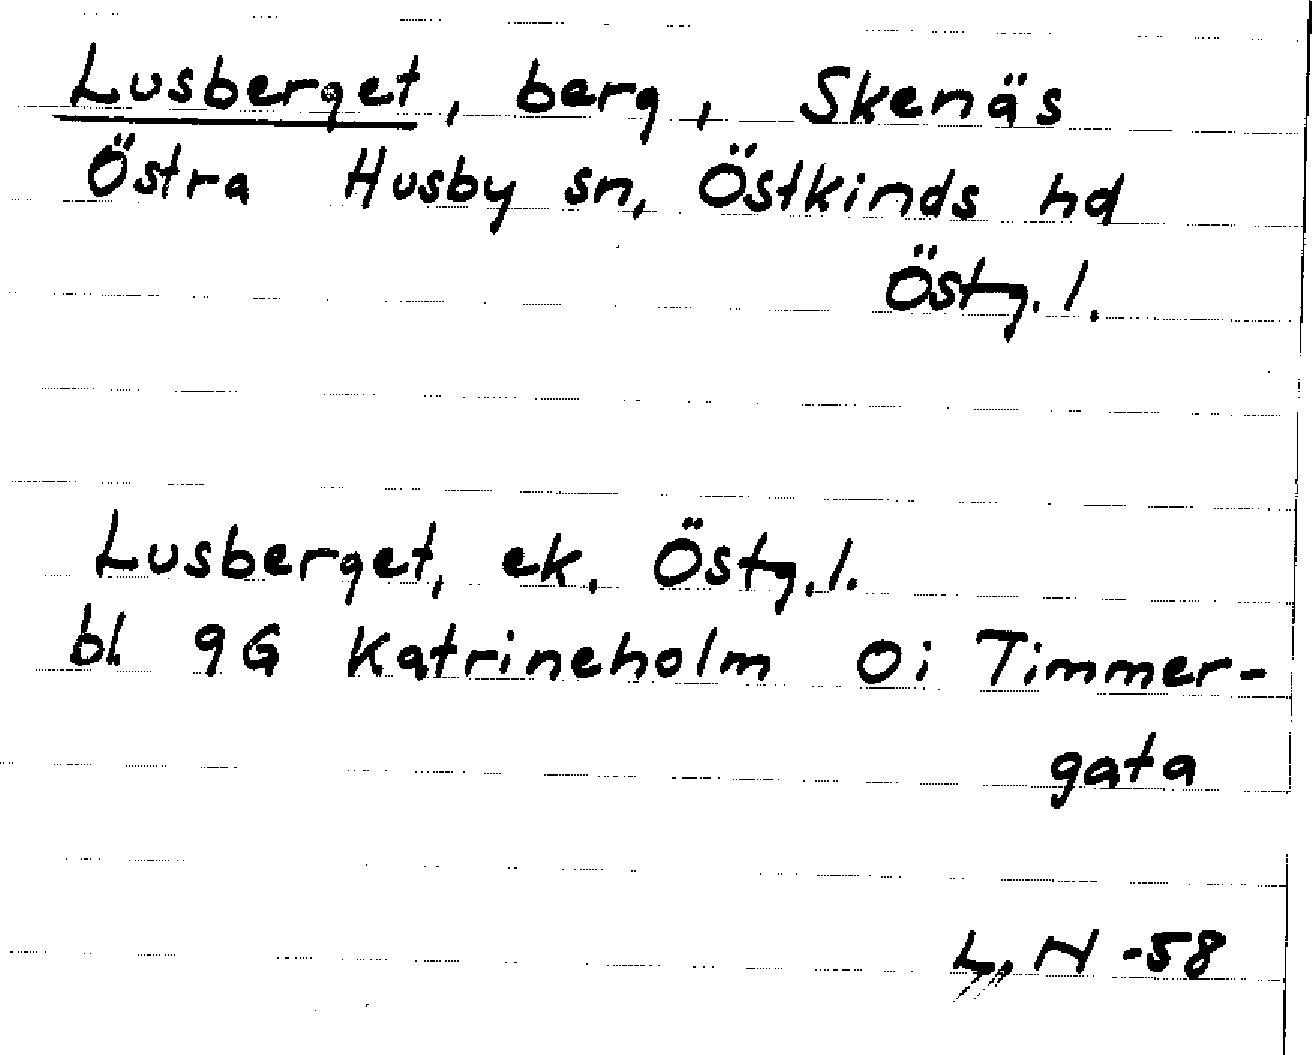 Lusberget, berg, Skenäs
Östra Husby sn, Östkinds hd
Östg. l.
Lusberget, ek. Östg. l.
bl. 9G Katrineholm 0i Timmer-
gata
N -58